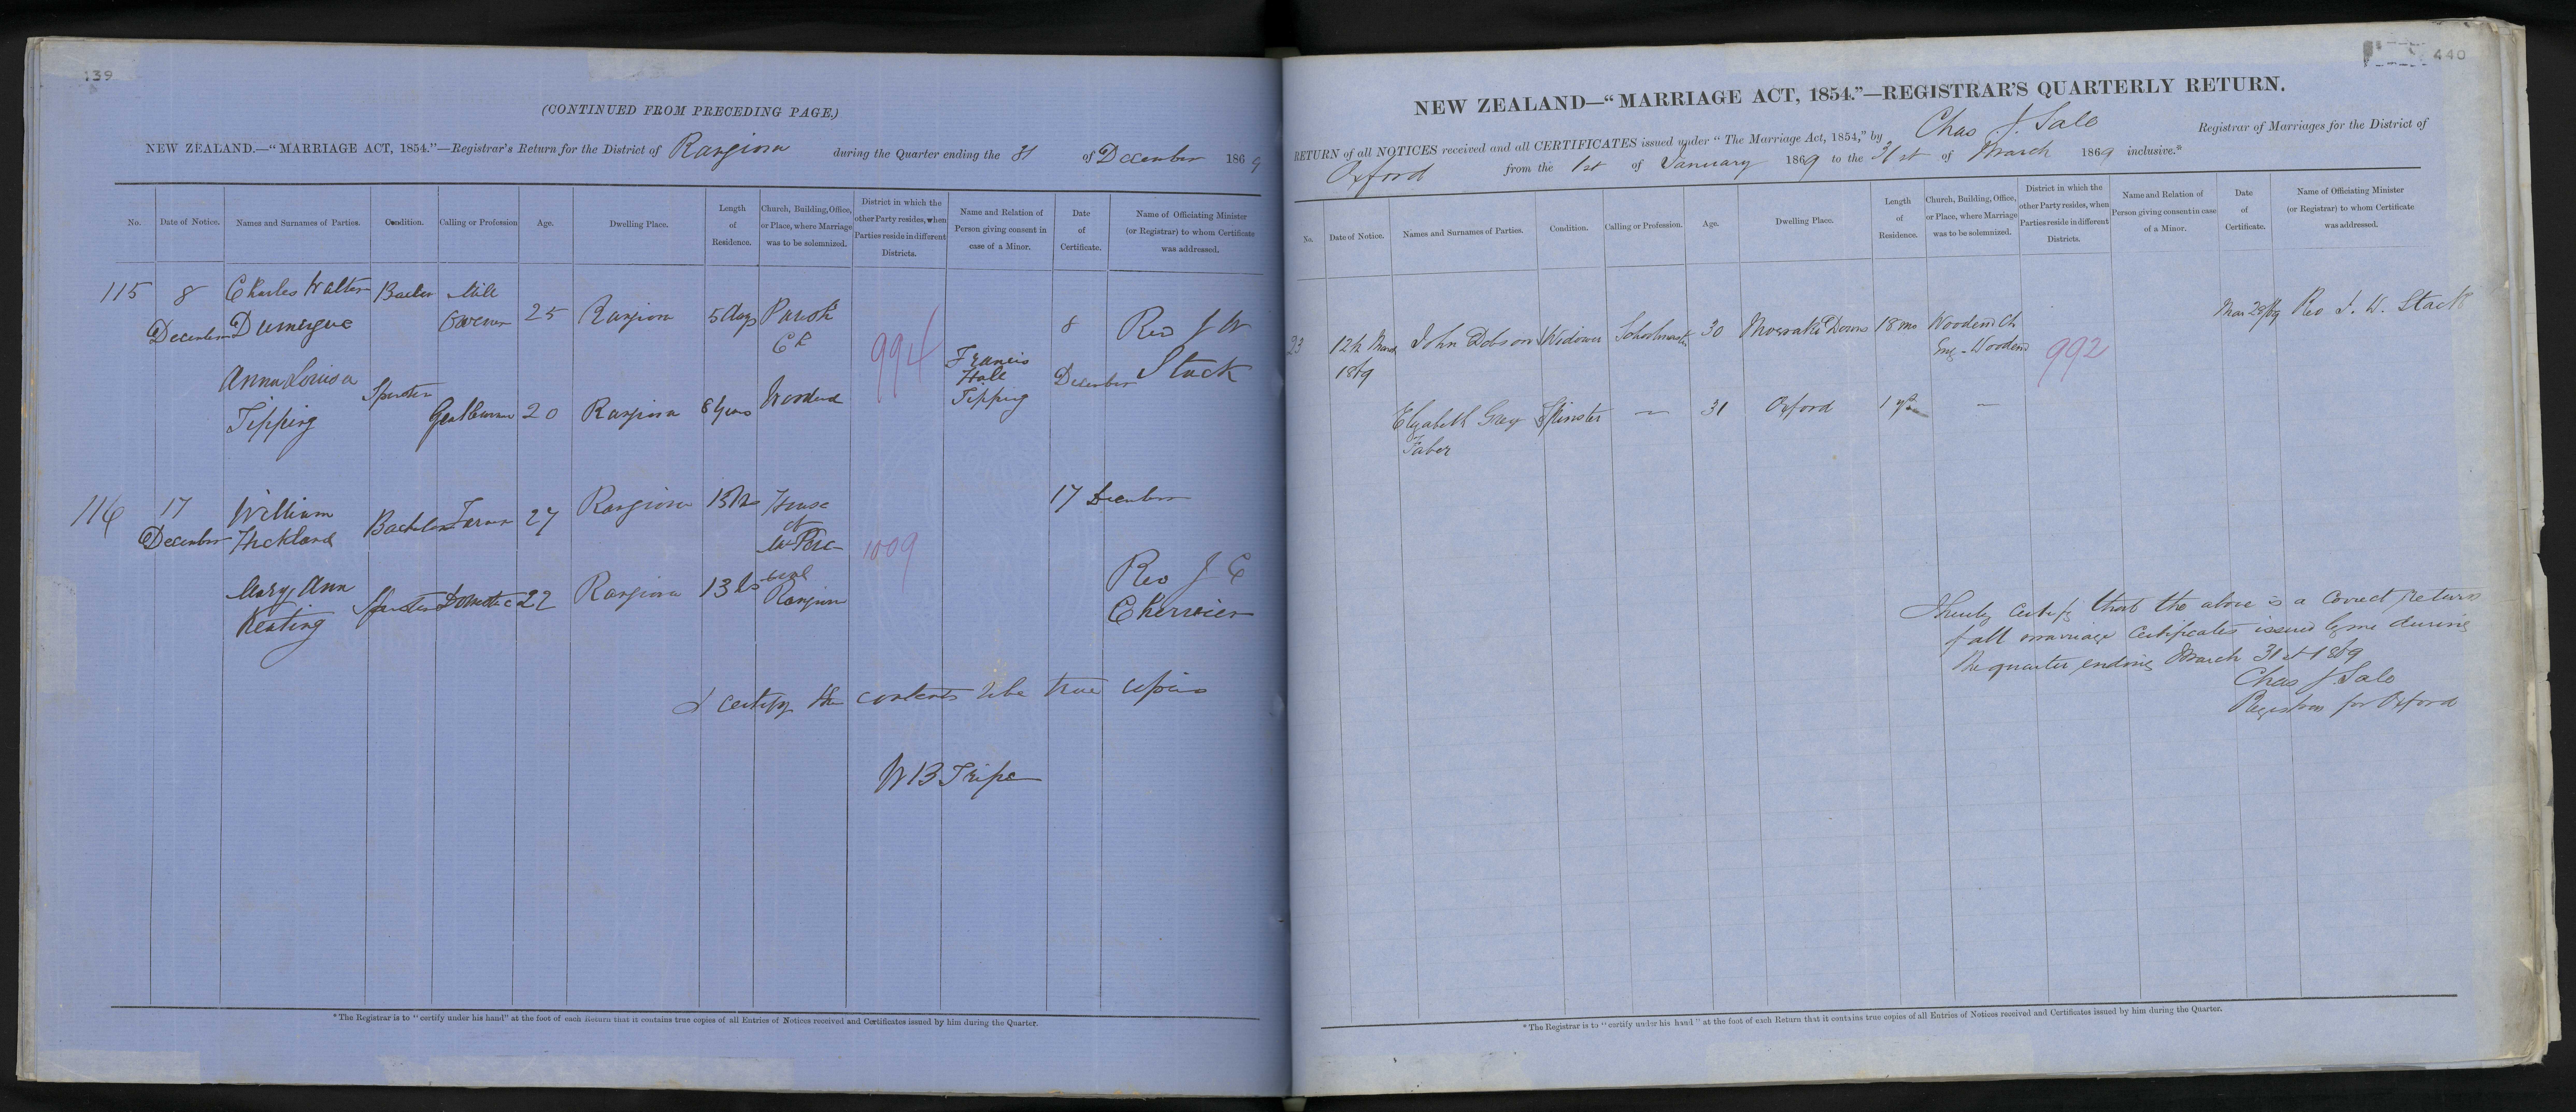 139
(CONTINUED FROM PRECEDING PAGE.)
NEW ZEALAND.—“MARRIAGE ACT, 1854.”—Registrar's Return for the District of Rangiora during the Quarter ending the 31 of December 1869
No. Date of Notice. Names and Surnames of Parties. Condition. Calling or Profession Age. Dwelling Place. Length of Residence. Church, Building, Office, or Place, where Marriage was to be solemnized. District in which the other Party resides, when Parties reside in different Districts. Name and Relation of Person giving consent in case of a Minor. Date of Certificate. Name of Officiating Minister (or Registrar) to whom Certificate was addressed.
115 8 December Charles Walter Dumergue Mill 25 Rangiora 5 days Parish Ch 994 8 December Rev J W Stack
Anna Louisa Tipping Spinster Gentlewoman 20 Rangiora 8 years Woodend Francis Hale Tipping
116 17 December William Bachelor 27 Rangiora House of 1009 17 December
Mary Ann Keating Spinster Domestic 22 Rangiora Rangiora Rev J C Chervier
I certify the contents to be true copies
W B Tripe
*The Registrar is to “certify under his hand” at the foot of each Return that it contains true copies of all Entries of Notices received and Certificates issued by him during the Quarter.
440
NEW ZEALAND—“MARRIAGE ACT, 1854.”—REGISTRAR'S QUARTERLY RETURN.
RETURN of all NOTICES received and all CERTIFICATES issued under “The Marriage Act, 1854,” by Chas J. Sale Registrar of Marriages for the District of
Oxford from the 1st of January 1869 to the 31st of March 1869 inclusive.*
No. Date of Notice. Names and Surnames of Parties. Condition. Calling or Profession. Age. Dwelling Place. Length of Residence. Church, Building, Office, or Place, where Marriage was to be solemnized. District in which the other Party resides, when Parties reside in different Districts. Name and Relation of Person giving consent in case of a Minor. Date of Certificate. Name of Officiating Minister (or Registrar) to whom Certificate was addressed.
23 12th March 1869 John Dobson Widower Schoolmaster 30 Downs 18 mo Wooden Ch Eng - Woodend 992 Mar 29/69 Rev J. W. Stack
Elizabeth Grey Faber Spinster — 31 Oxford 1 yr —
I hereby certify that the above is a correct return
of all marriage certificates issued by me during
the quarter ending March 31st 1869
Chas J. Sale
Registrar for Oxford
*The Registrar is to “certify under his hand” at the foot of each Return that it contains true copies of all Entries of Notices received and Certificates issued by him during the Quarter.